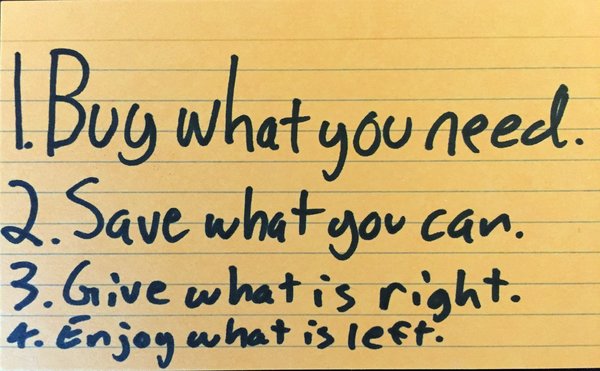 1. Buy what you need.
2. Save what you can.
3. Give what is right.
4. Enjoy what is left.